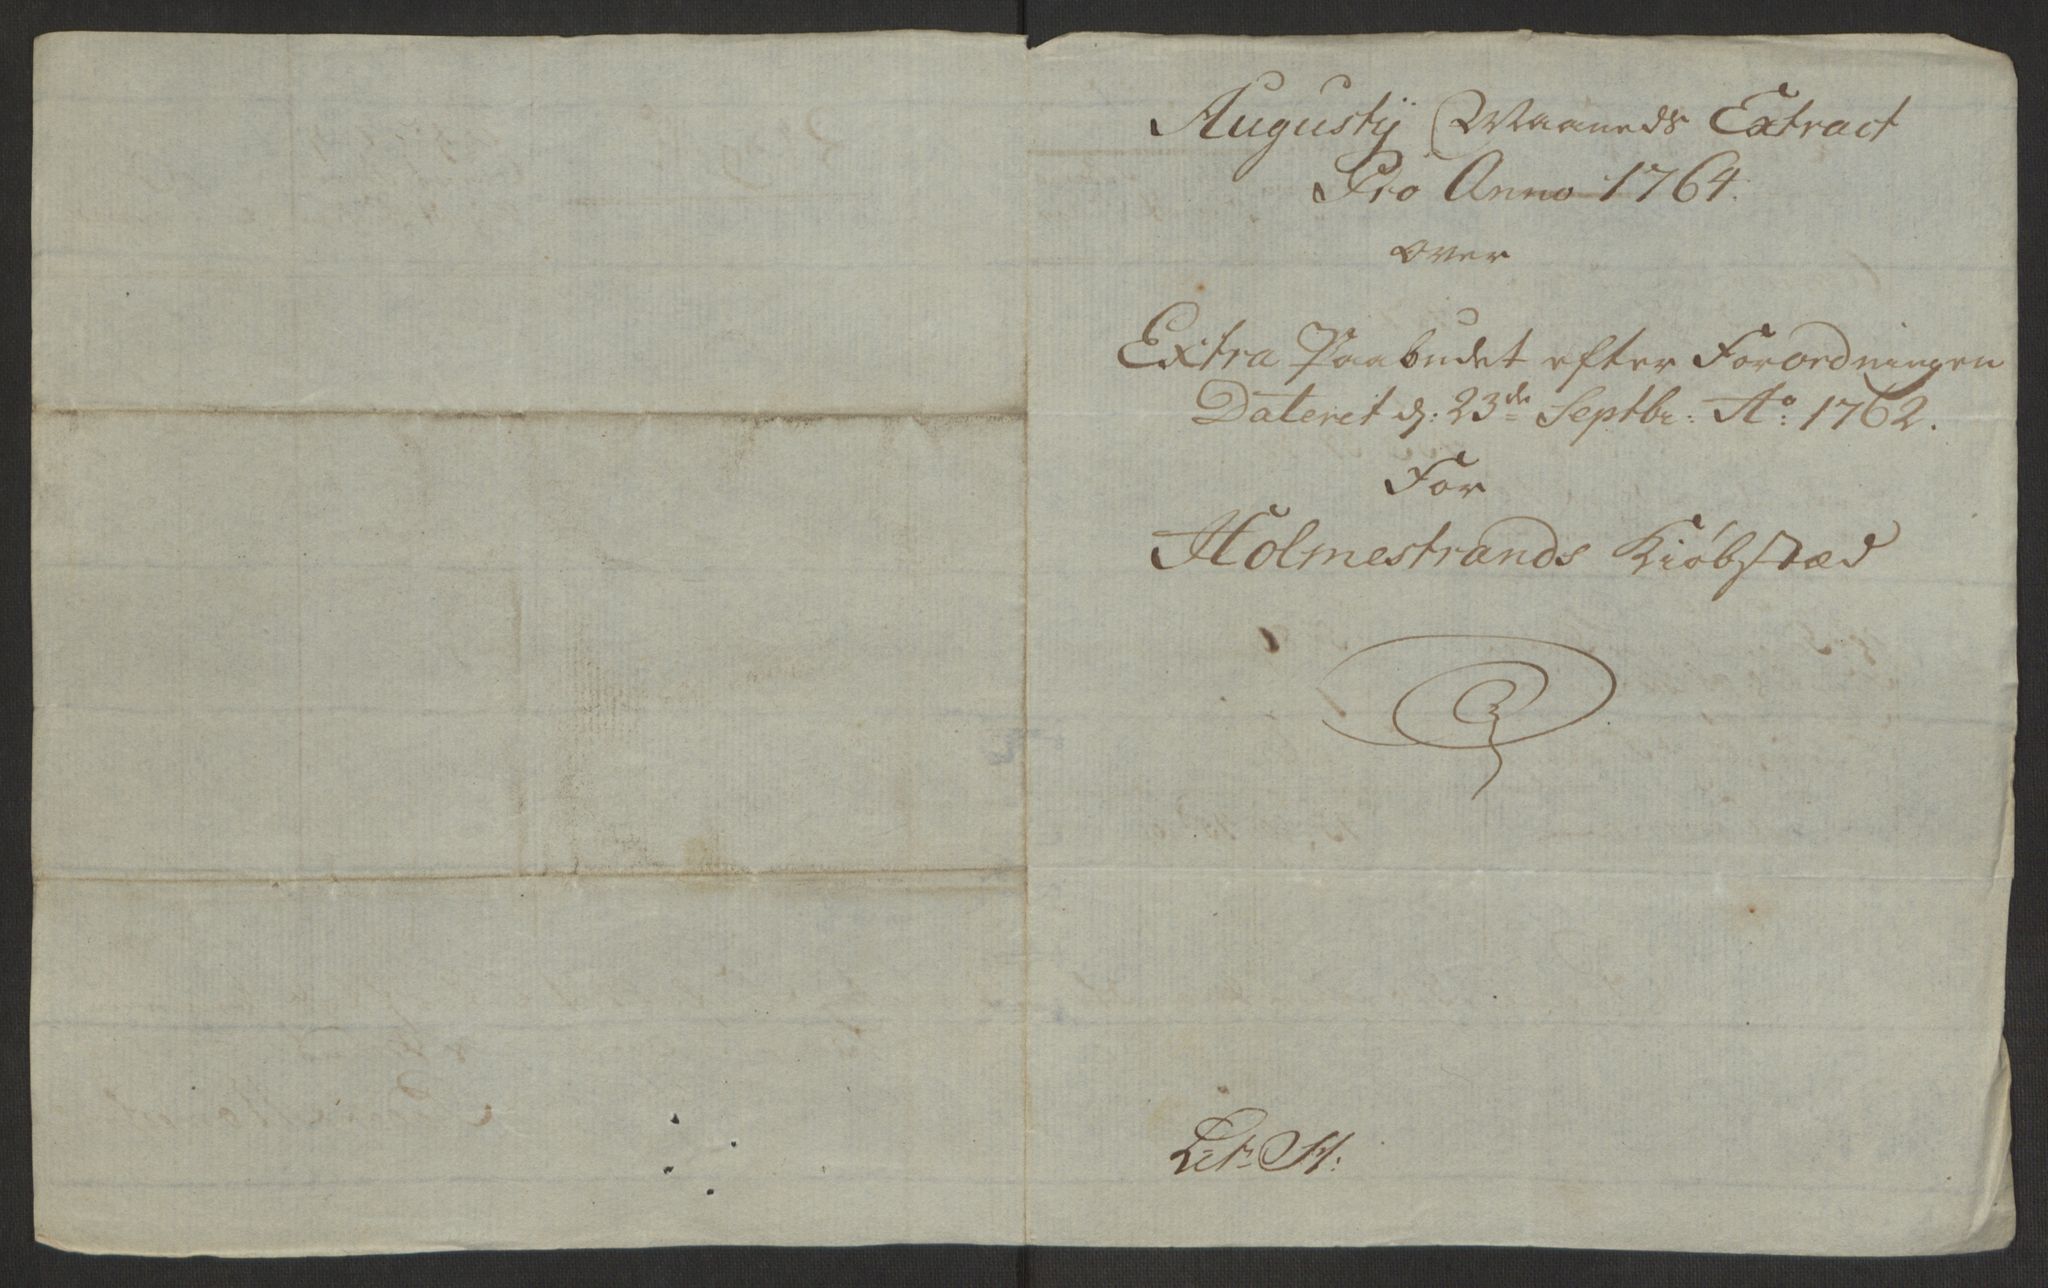 Augustij Maaneds Extract
Pro Anno 1764.
over
Extra Paabudet efter Forordningen
Dateret d: 23de Septbr: Ao: 1762.
For
Holmestrands Kiøbstæd
Litr: H: